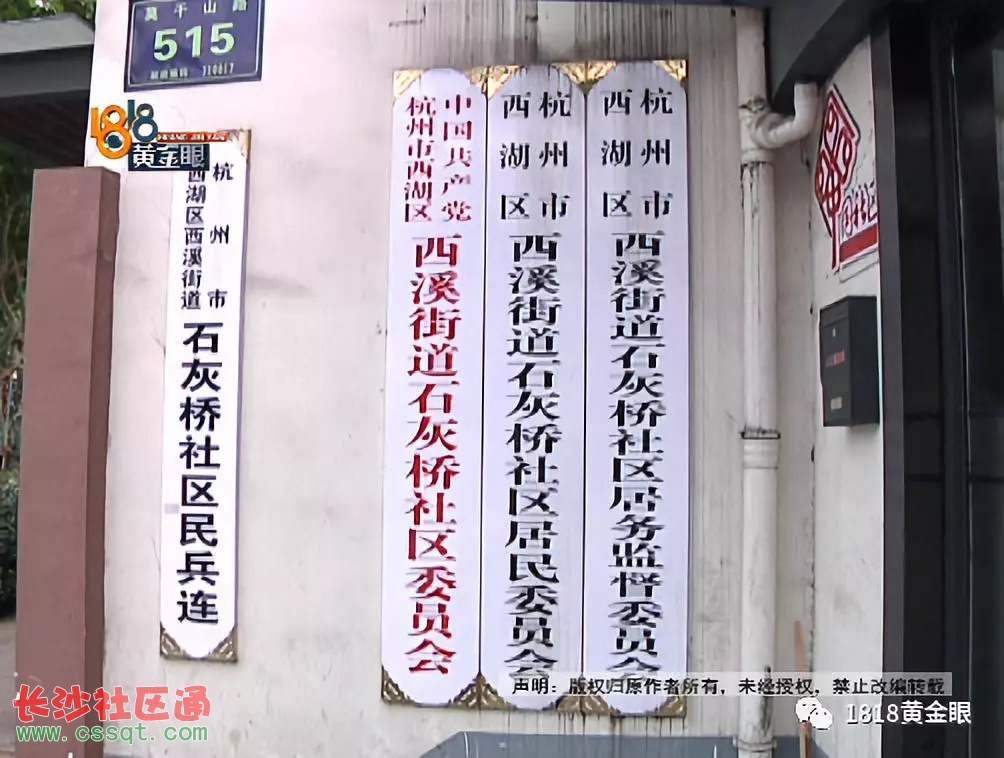 莫干山路
515
邮政编码 310017
1818
黄金眼
杭州市
西湖区西溪街道
石灰桥社区民兵连
中国共产党
杭州市西湖区
西溪街道石灰桥社区委员会
杭州市
西湖区
西溪街道石灰桥社区居民委员会
杭州市
西湖区
西溪街道石灰桥社区居务监督委员会
声明：版权归原作者所有，未经授权，禁止改编转载
1818黄金眼
长沙社区通
www.cssqt.com